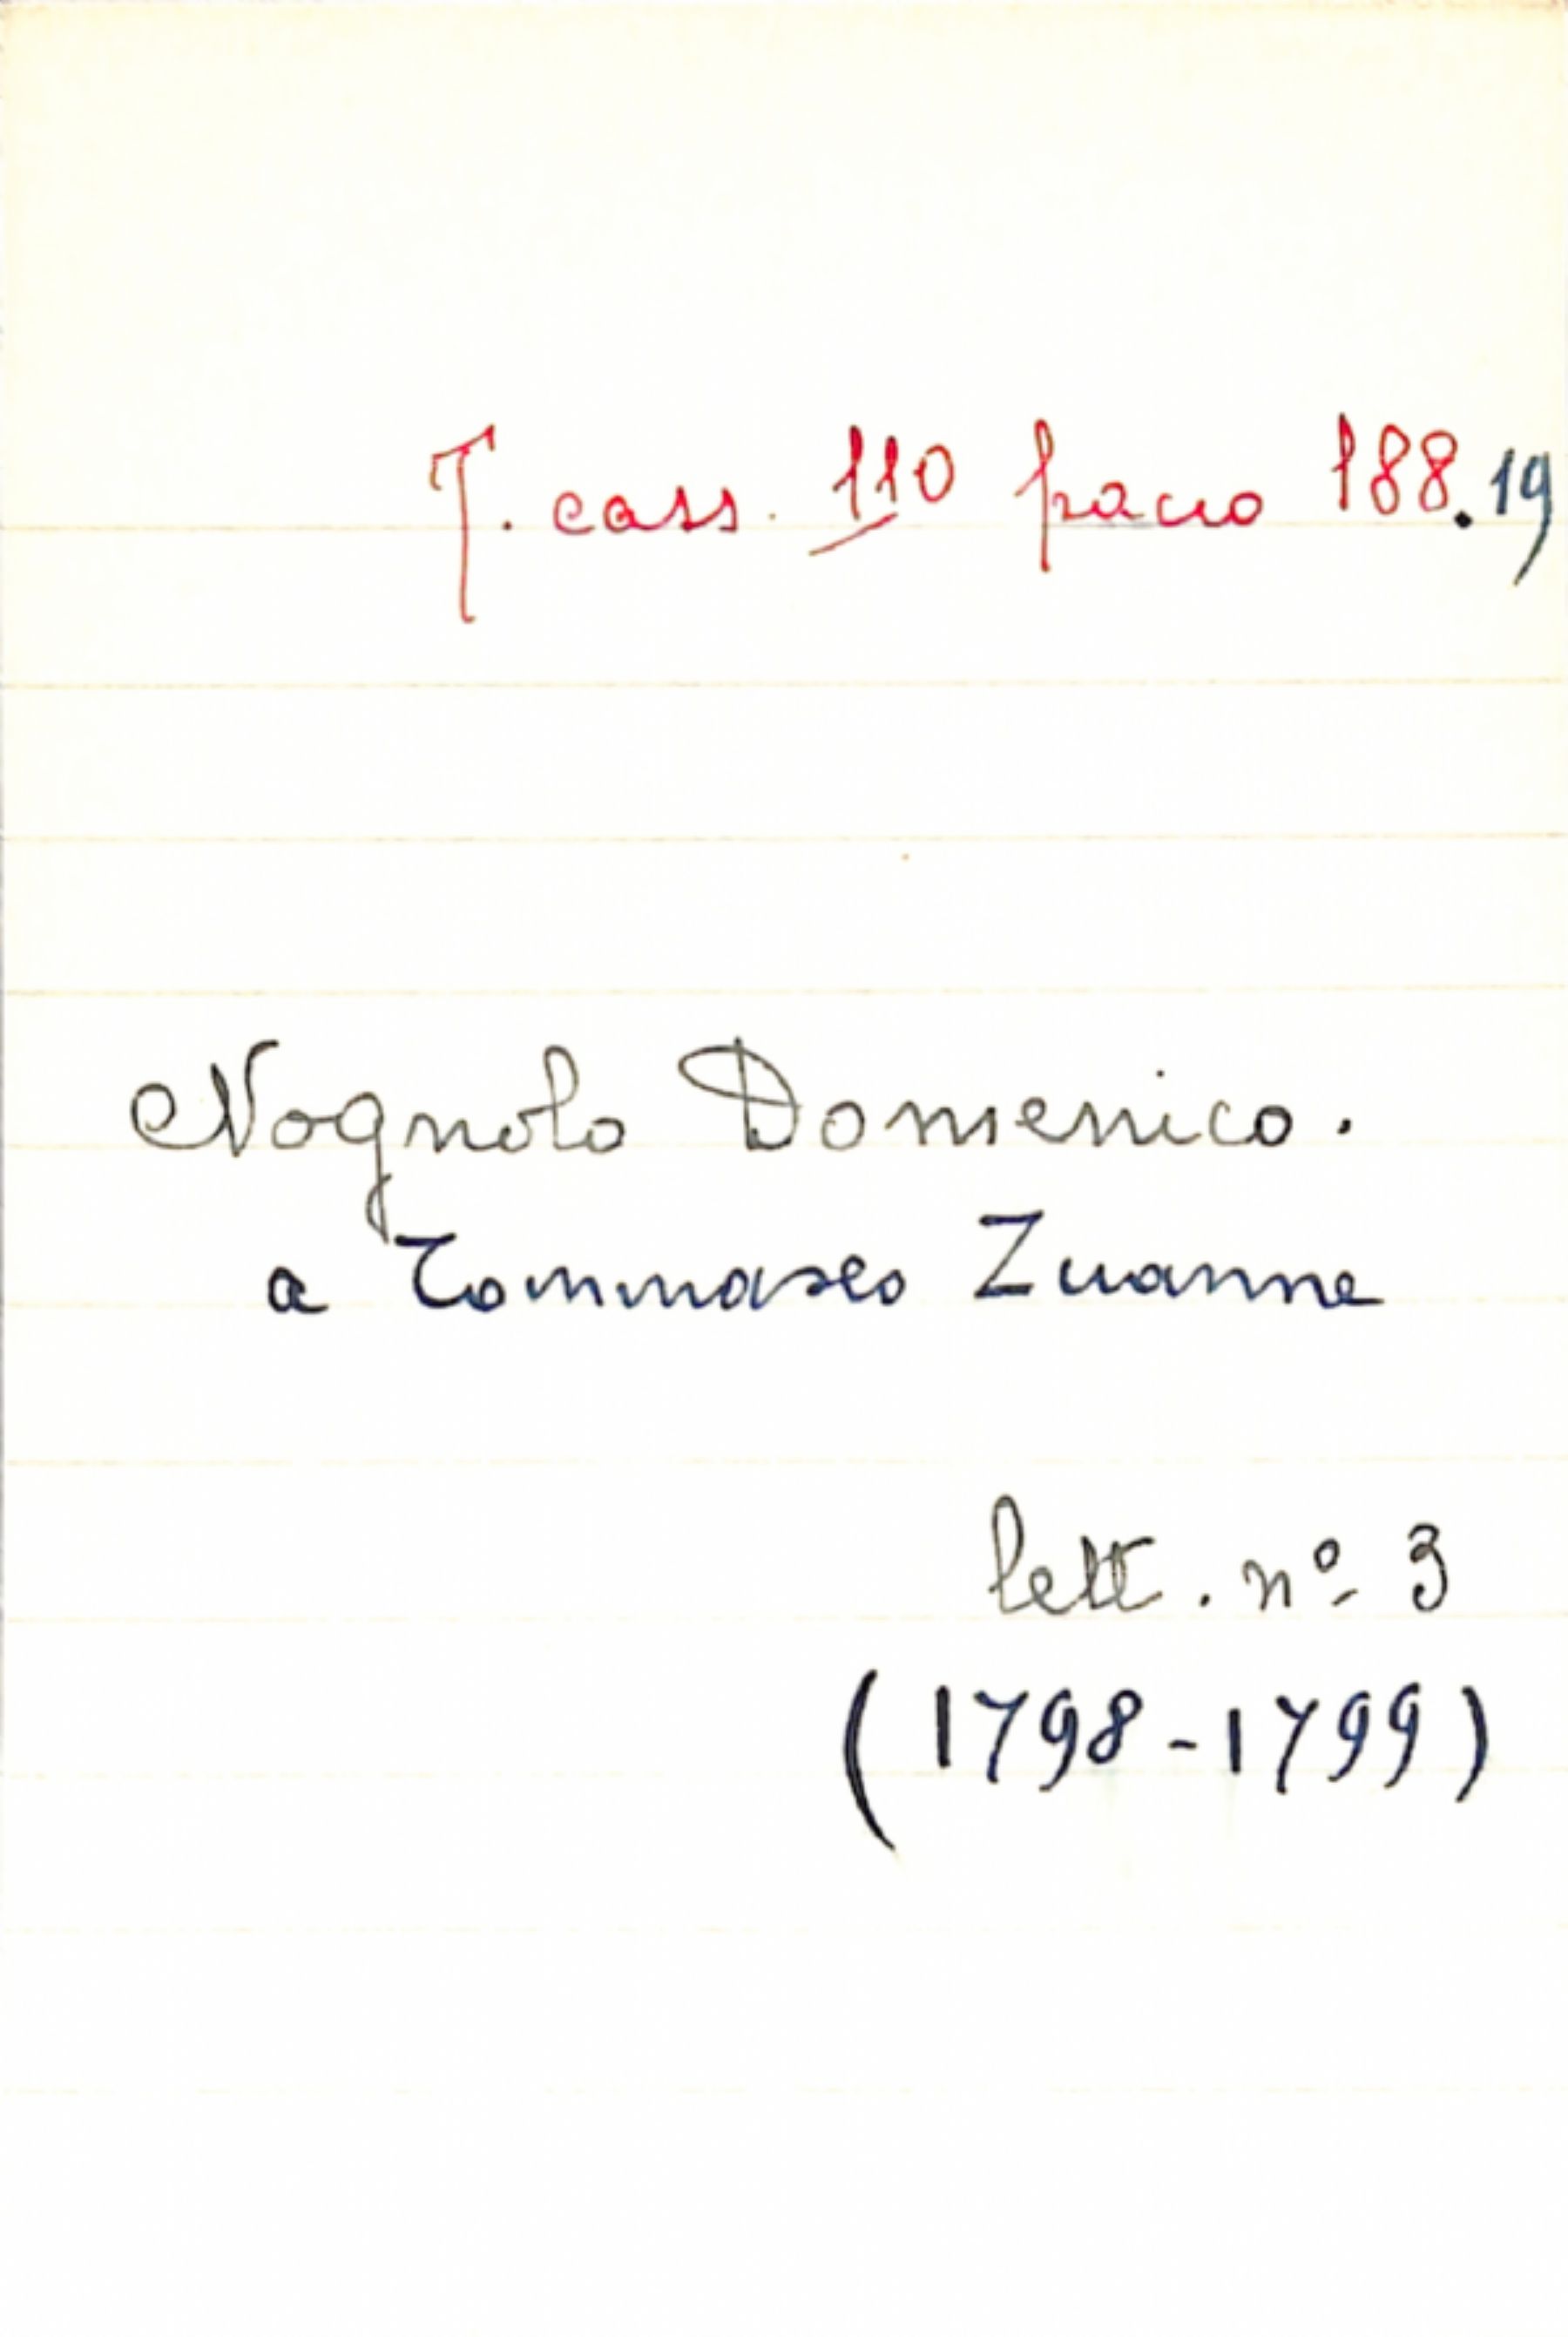 T. cass. 110 pacco 188.19
Nognolo Domenico.
a Tommaseo Zuanne
lett. nº 3
(1798-1799)